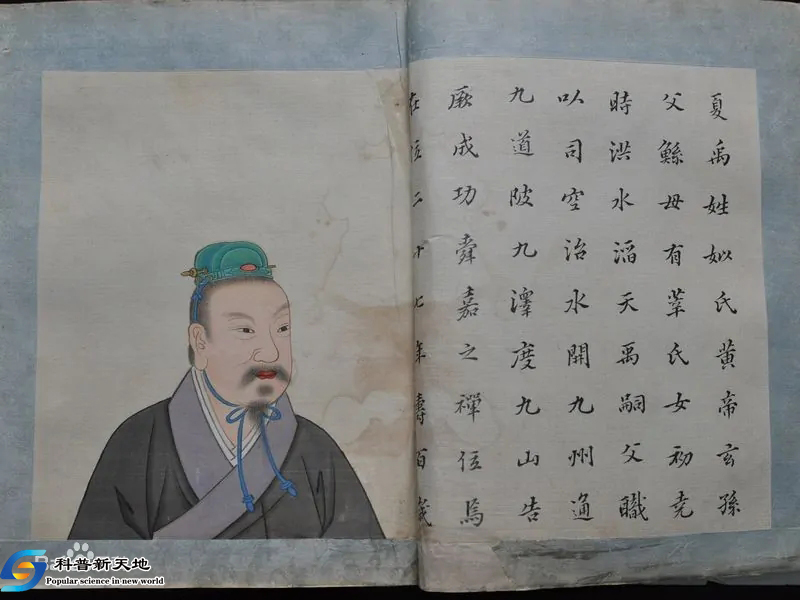 夏禹姓姒氏黄帝玄孫
父鯀母有莘氏女初堯
時洪水滔天禹嗣父職
以司空治水開九州通
九道陂九澤度九山告
厥成功舜嘉之禪位焉
在位二十七年壽百歲
科普新天地
Popular science in new world